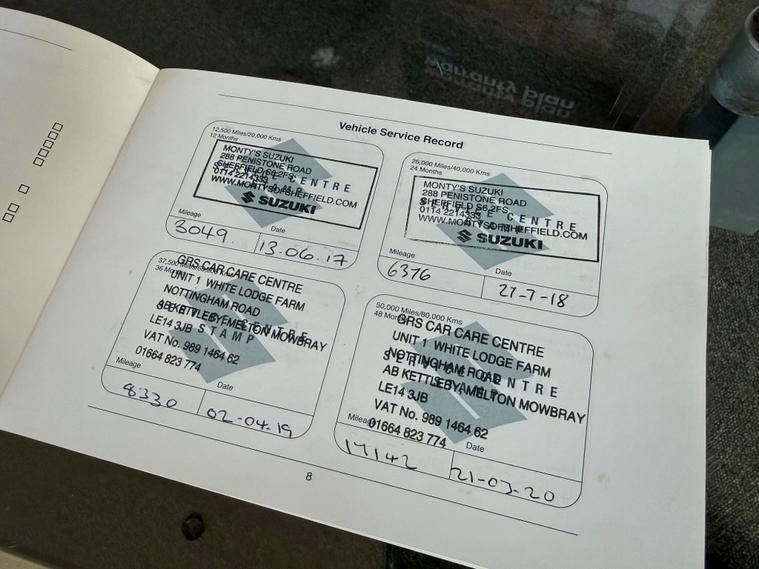 warranty plan
Vehicle Service Record
12,500 Miles/20,000 Kms
12 Months
MONTY'S SUZUKI
288 PENISTONE ROAD
SHEFFIELD S6 2FS
0114 2214333
WWW.MONTYSOFSHEFFIELD.COM
SUZUKI
SERVICE CENTRE
STAMP
Mileage Date
3049. 13.06.17
25,000 Miles/40,000 Kms
24 Months
MONTY'S SUZUKI
288 PENISTONE ROAD
SHEFFIELD S6 2FS
0114 2214333
WWW.MONTYSOFSHEFFIELD.COM
SUZUKI
SERVICE CENTRE
STAMP
Mileage Date
6376 27-7-18
37,500
36 Months
GRS CAR CARE CENTRE
UNIT 1 WHITE LODGE FARM
NOTTINGHAM ROAD
AB KETTLEBY, MELTON MOWBRAY
LE14 3JB
VAT No. 989 1464 62
01664 823 774
SERVICE CENTRE
STAMP
Mileage Date
8330 02-04-19
50,000 Miles/80,000 Kms
48 Months
GRS CAR CARE CENTRE
UNIT 1 WHITE LODGE FARM
NOTTINGHAM ROAD
AB KETTLEBY, MELTON MOWBRAY
LE14 3JB
VAT No. 989 1464 62
01664 823 774
SERVICE CENTRE
STAMP
Mileage Date
17142 21-03-20
8